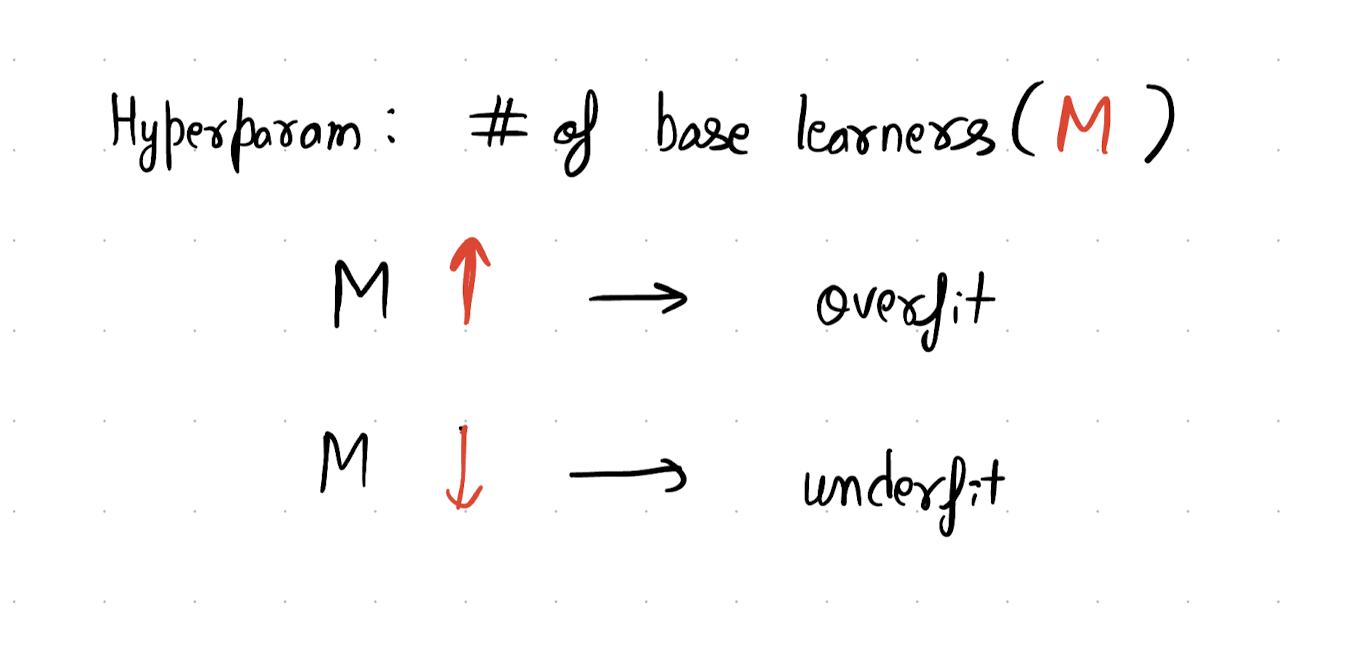 Hyperparam: # of base learners (M)
M ↑ → overfit
M ↓ → underfit